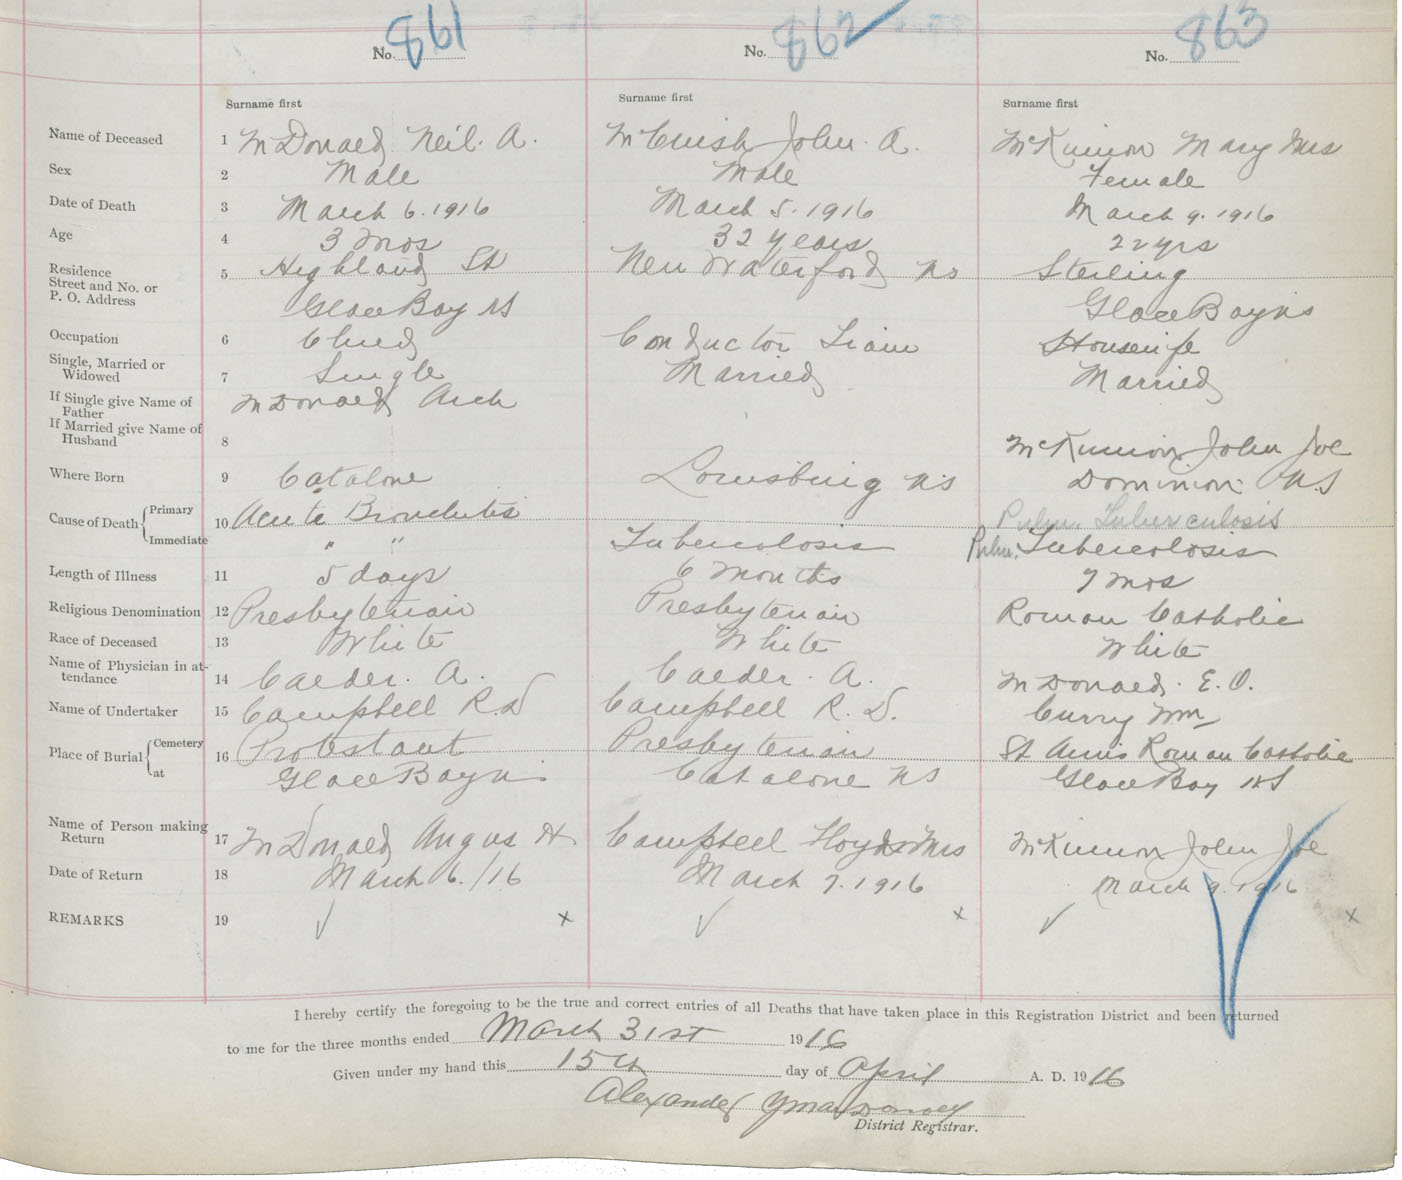 No. 861 No. 862 No. 863
Surname first Surname first Surname first
Name of Deceased 1 McDonald Neil. A. McCuish John. A. McKinnon Mary Mrs
Sex 2 Male Male Female
Date of Death 3 March 6. 1916 March 5. 1916 March 9. 1916
Age 4 3 mos 32 years 22 yrs
Residence
Street and No. or 5 Highland St New Waterford NS Sterling
P. O. Address Glace Bay NS Glace Bay NS
Occupation 6 Child Conductor Train Housewife
Single, Married or
Widowed 7 Single Married Married
If Single give Name of McDonald Arch
Father
If Married give Name of
Husband 8 McKinnon John Joe
Where Born 9 Catalone Louisburg NS Dominion N.S
Cause of Death Primary 10 Acute Bronchitis Pulm. Tuberculosis
Immediate " " Tuberculosis Pulm. Tuberculosis
Length of Illness 11 5 days 6 months 7 mos
Religious Denomination 12 Presbyterian Presbyterian Roman Catholic
Race of Deceased 13 White White White
Name of Physician in at-
tendance 14 Calder. A. Calder. A. McDonald. E. O.
Name of Undertaker 15 Campbell R.D Campbell R. D. Curry Wm
Place of Burial Cemetery 16 Protestant Presbyterian St Anns Roman Catholic
at Glace Bay NS Catalone NS Glace Bay NS
Name of Person making
Return 17 McDonald Angus H Campbell Mrs McKinnon John Joe
Date of Return 18 March 6./16 March 7. 1916 March 9. 1916
REMARKS 19 ✓ x ✓ x ✓ x
I hereby certify the foregoing to be the true and correct entries of all Deaths that have taken place in this Registration District and been returned
to me for the three months ended March 31st 1916
Given under my hand this 15th day of April A. D. 1916
Alexander
District Registrar.